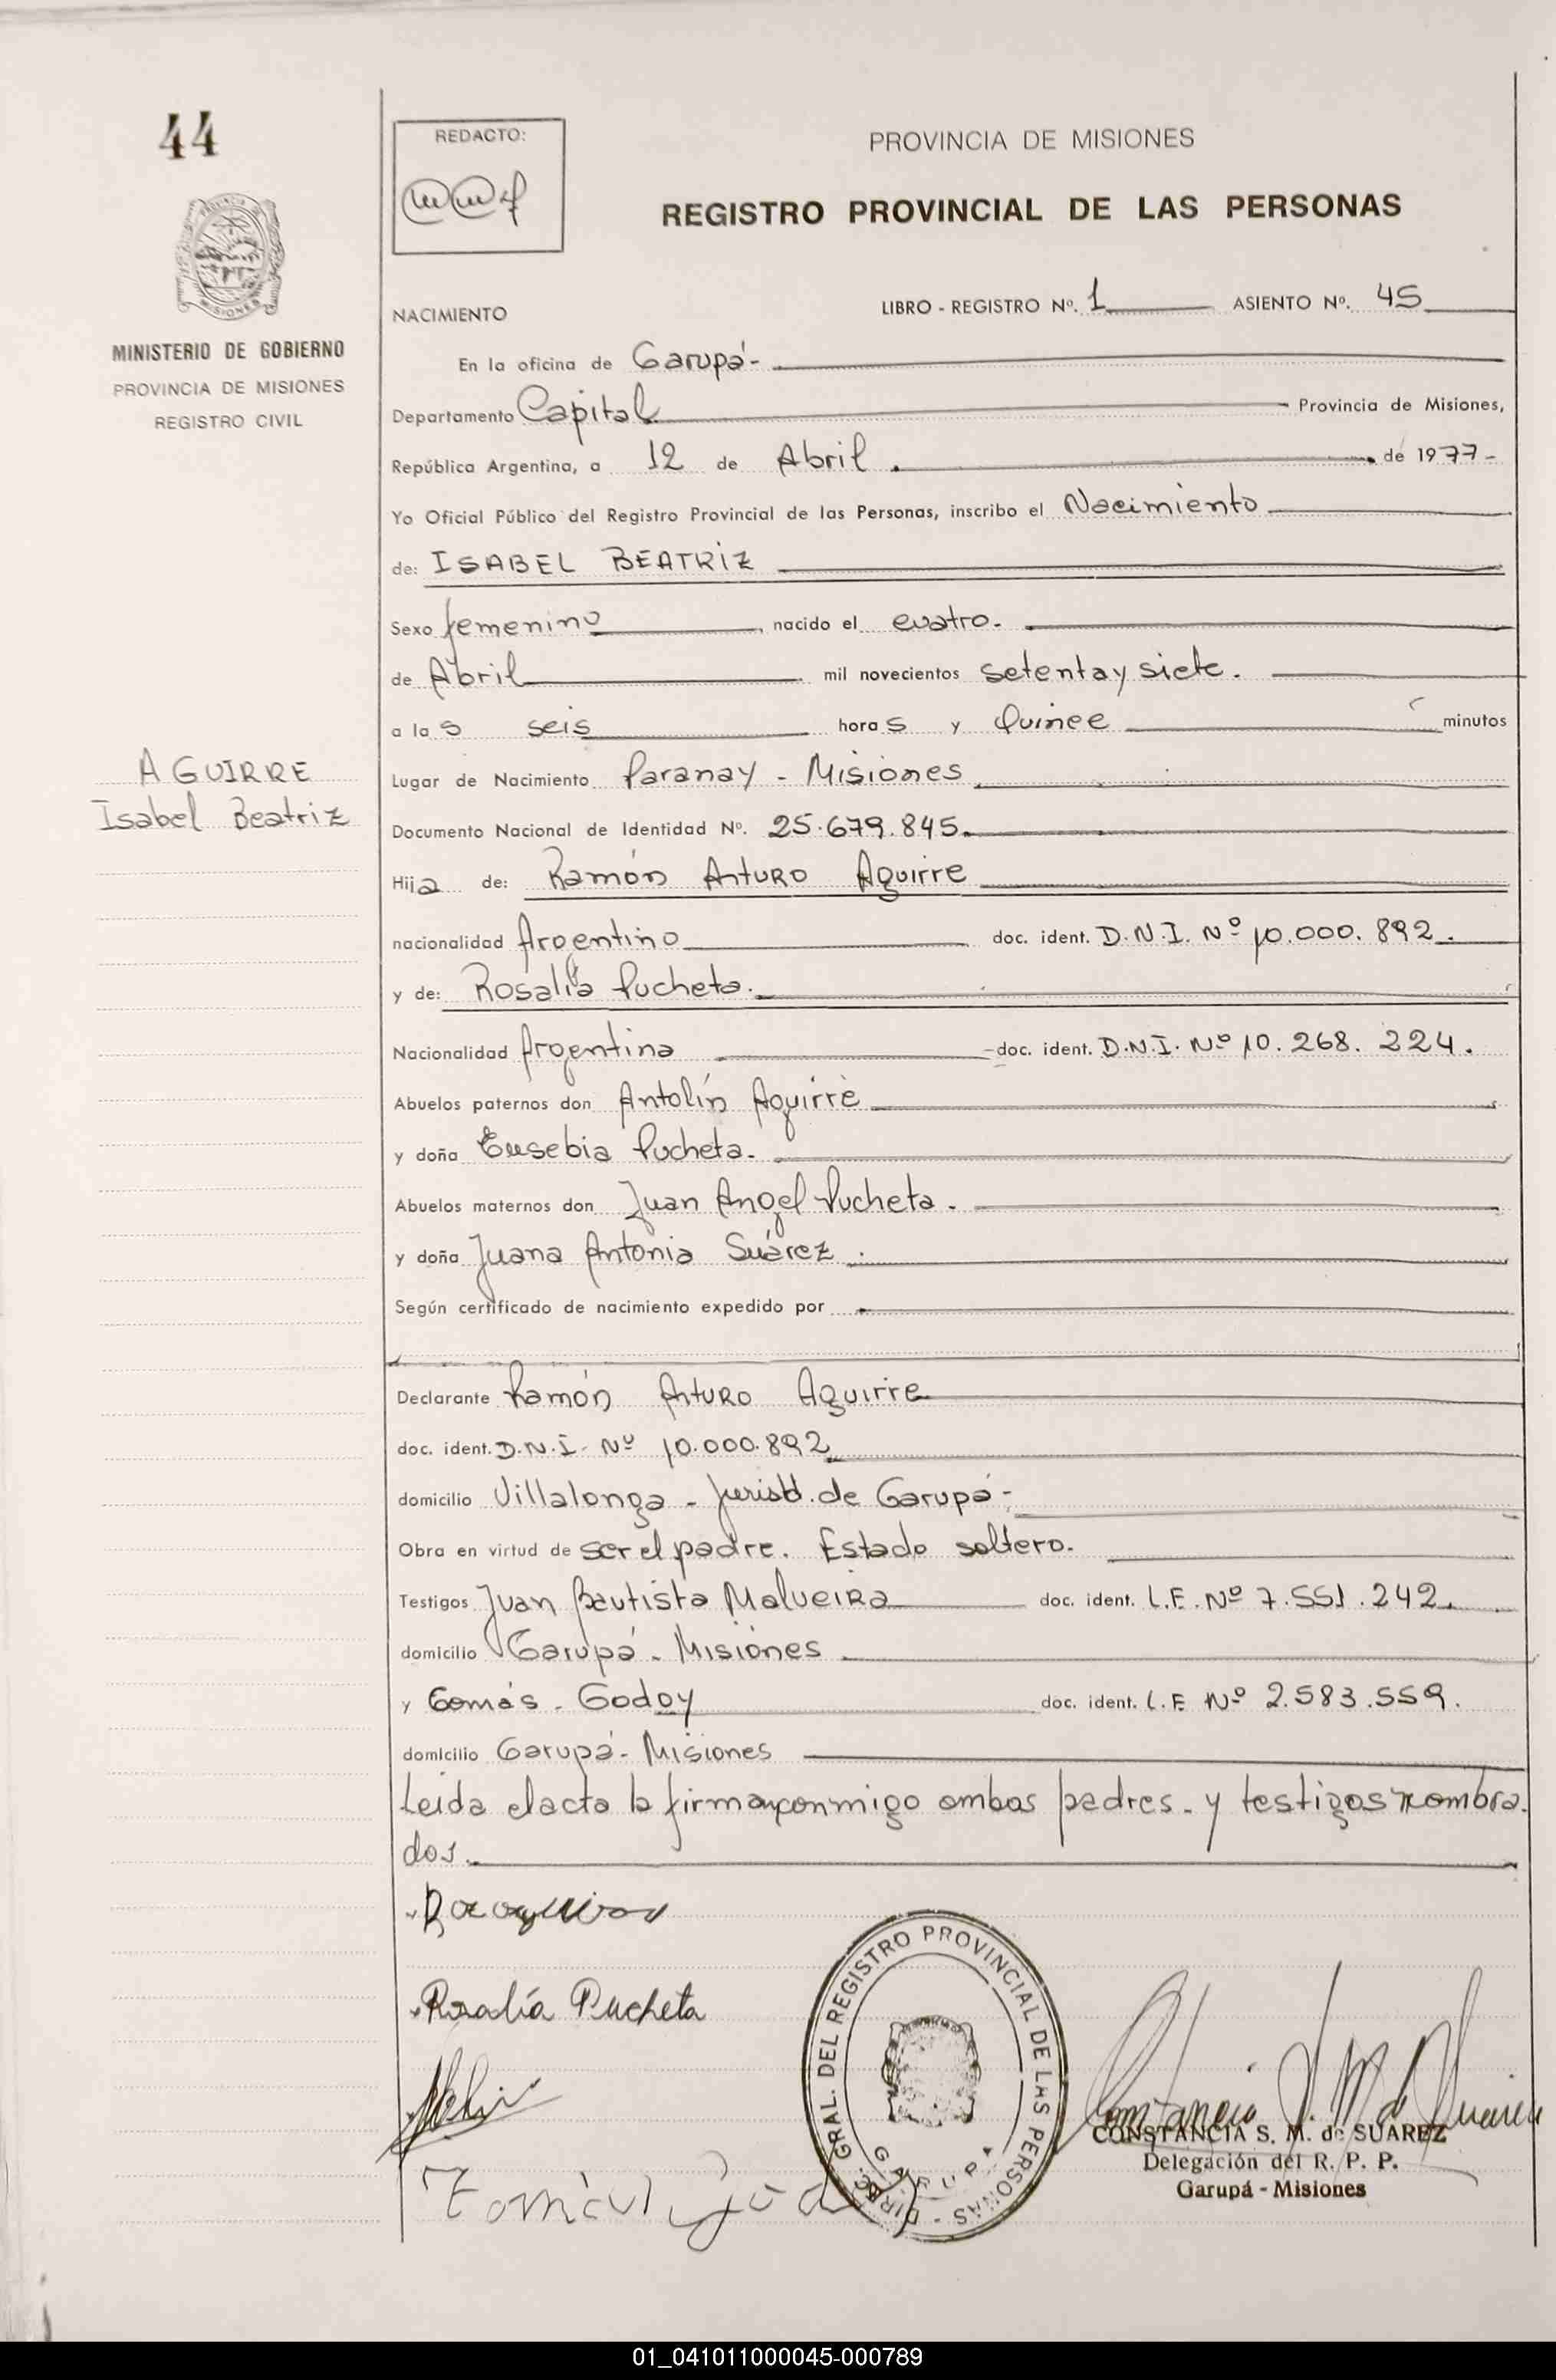 44
REDACTO:
PROVINCIA DE MISIONES
REGISTRO PROVINCIAL DE LAS PERSONAS
MINISTERIO DE GOBIERNO
PROVINCIA DE MISIONES
REGISTRO CIVIL
NACIMIENTO LIBRO - REGISTRO Nº. 1 ASIENTO Nº. 45
En la oficina de Garupá -
Departamento Capital Provincia de Misiones,
República Argentina, a 12 de Abril . de 1977 -
Yo Oficial Público del Registro Provincial de las Personas, inscribo el Nacimiento
de: ISABEL BEATRIZ
Sexo femenino, nacido el cuatro.
de Abril mil novecientos setenta y siete.
a las seis horas y Quince minutos
AGUIRRE
Isabel Beatriz
Lugar de Nacimiento Paranay - Misiones
Documento Nacional de Identidad Nº. 25.679.845.
Hija de: Ramón Arturo Aguirre
nacionalidad Argentino doc. ident. D.N.I. Nº 10.000.892.
y de: Rosalía Pucheta.
Nacionalidad Argentina doc. ident. D.N.I. Nº 10.268.224.
Abuelos paternos don Antolín Aguirre
y doña Eusebia Pucheta.
Abuelos maternos don Juan Angel Pucheta.
y doña Juana Antonia Suárez.
Según certificado de nacimiento expedido por
Declarante Ramón Arturo Aguirre
doc. ident. D.N.I. Nº 10.000.892
domicilio Villalonga - Jurisd. de Garupá -
Obra en virtud de ser el padre. Estado soltero.
Testigos Juan Bautista Malveira doc. ident. L.E. Nº 7.551.242.
domicilio Garupá - Misiones
y Tomás - Godoy doc. ident. L.E. Nº 2.583.559.
domicilio Garupá - Misiones
Leida el acta la firman conmigo ambos padres - y testigos nombra.
dos.
Rosalía Pucheta
DIREC. GRAL. DEL REGISTRO PROVINCIAL DE LAS PERSONAS -
GARUPA
CONSTANCIA S. M. de SUAREZ
Delegación del R. P. P.
Garupá - Misiones
01_041011000045-000789